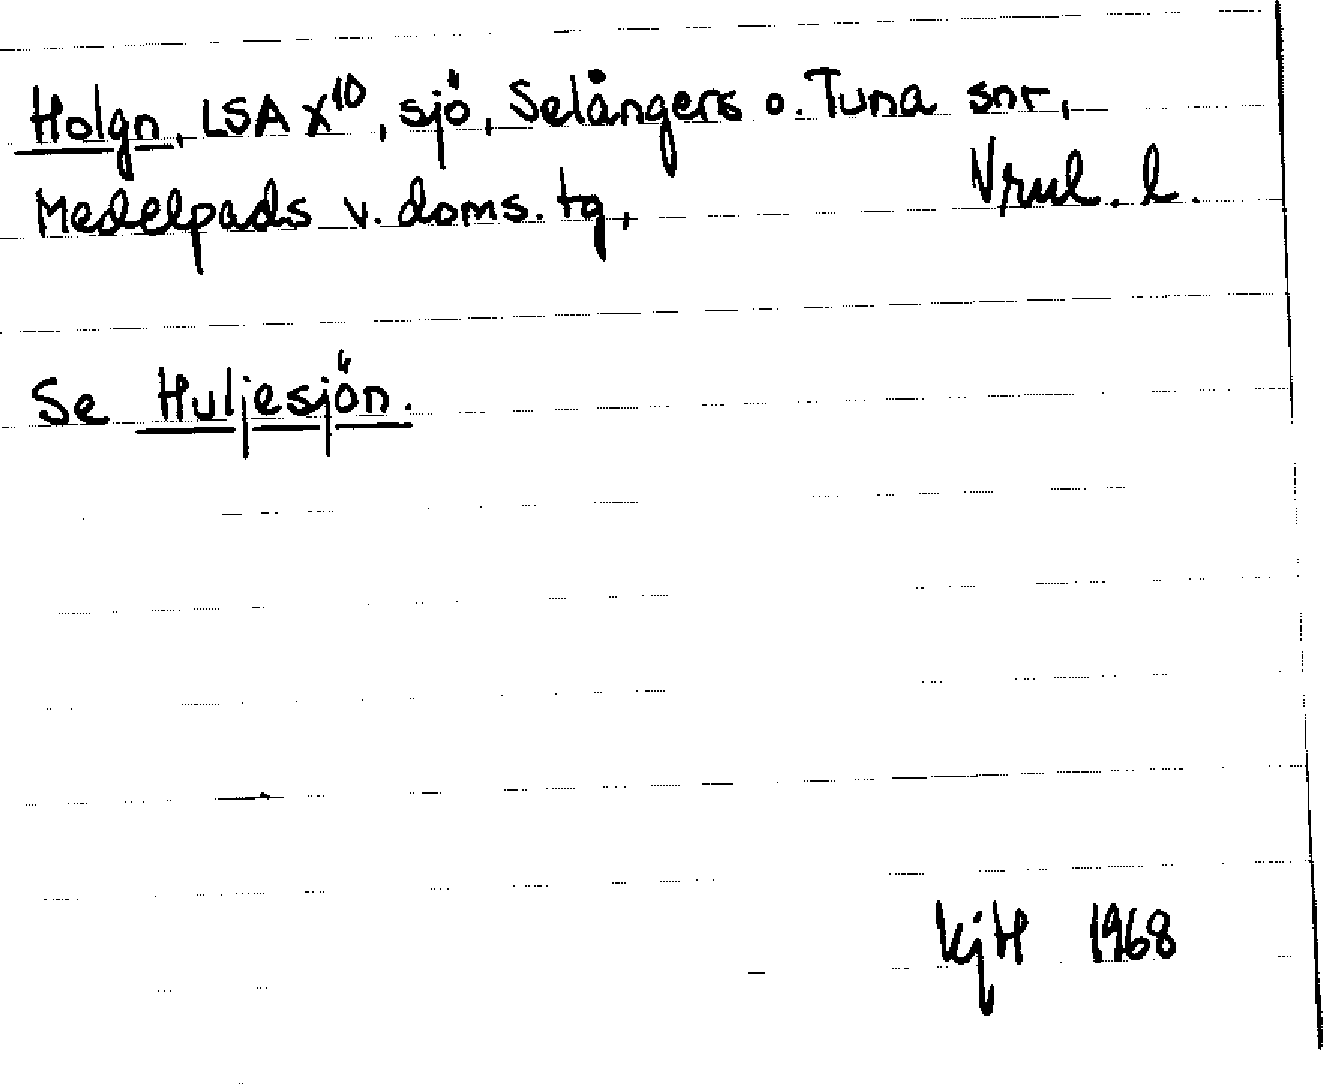 Holgn, LSA X10, sjö, Selångers o. Tuna snr,
Medelpads v. doms. tg, Vrul. l.
Se Huljesjön.
KjH 1968